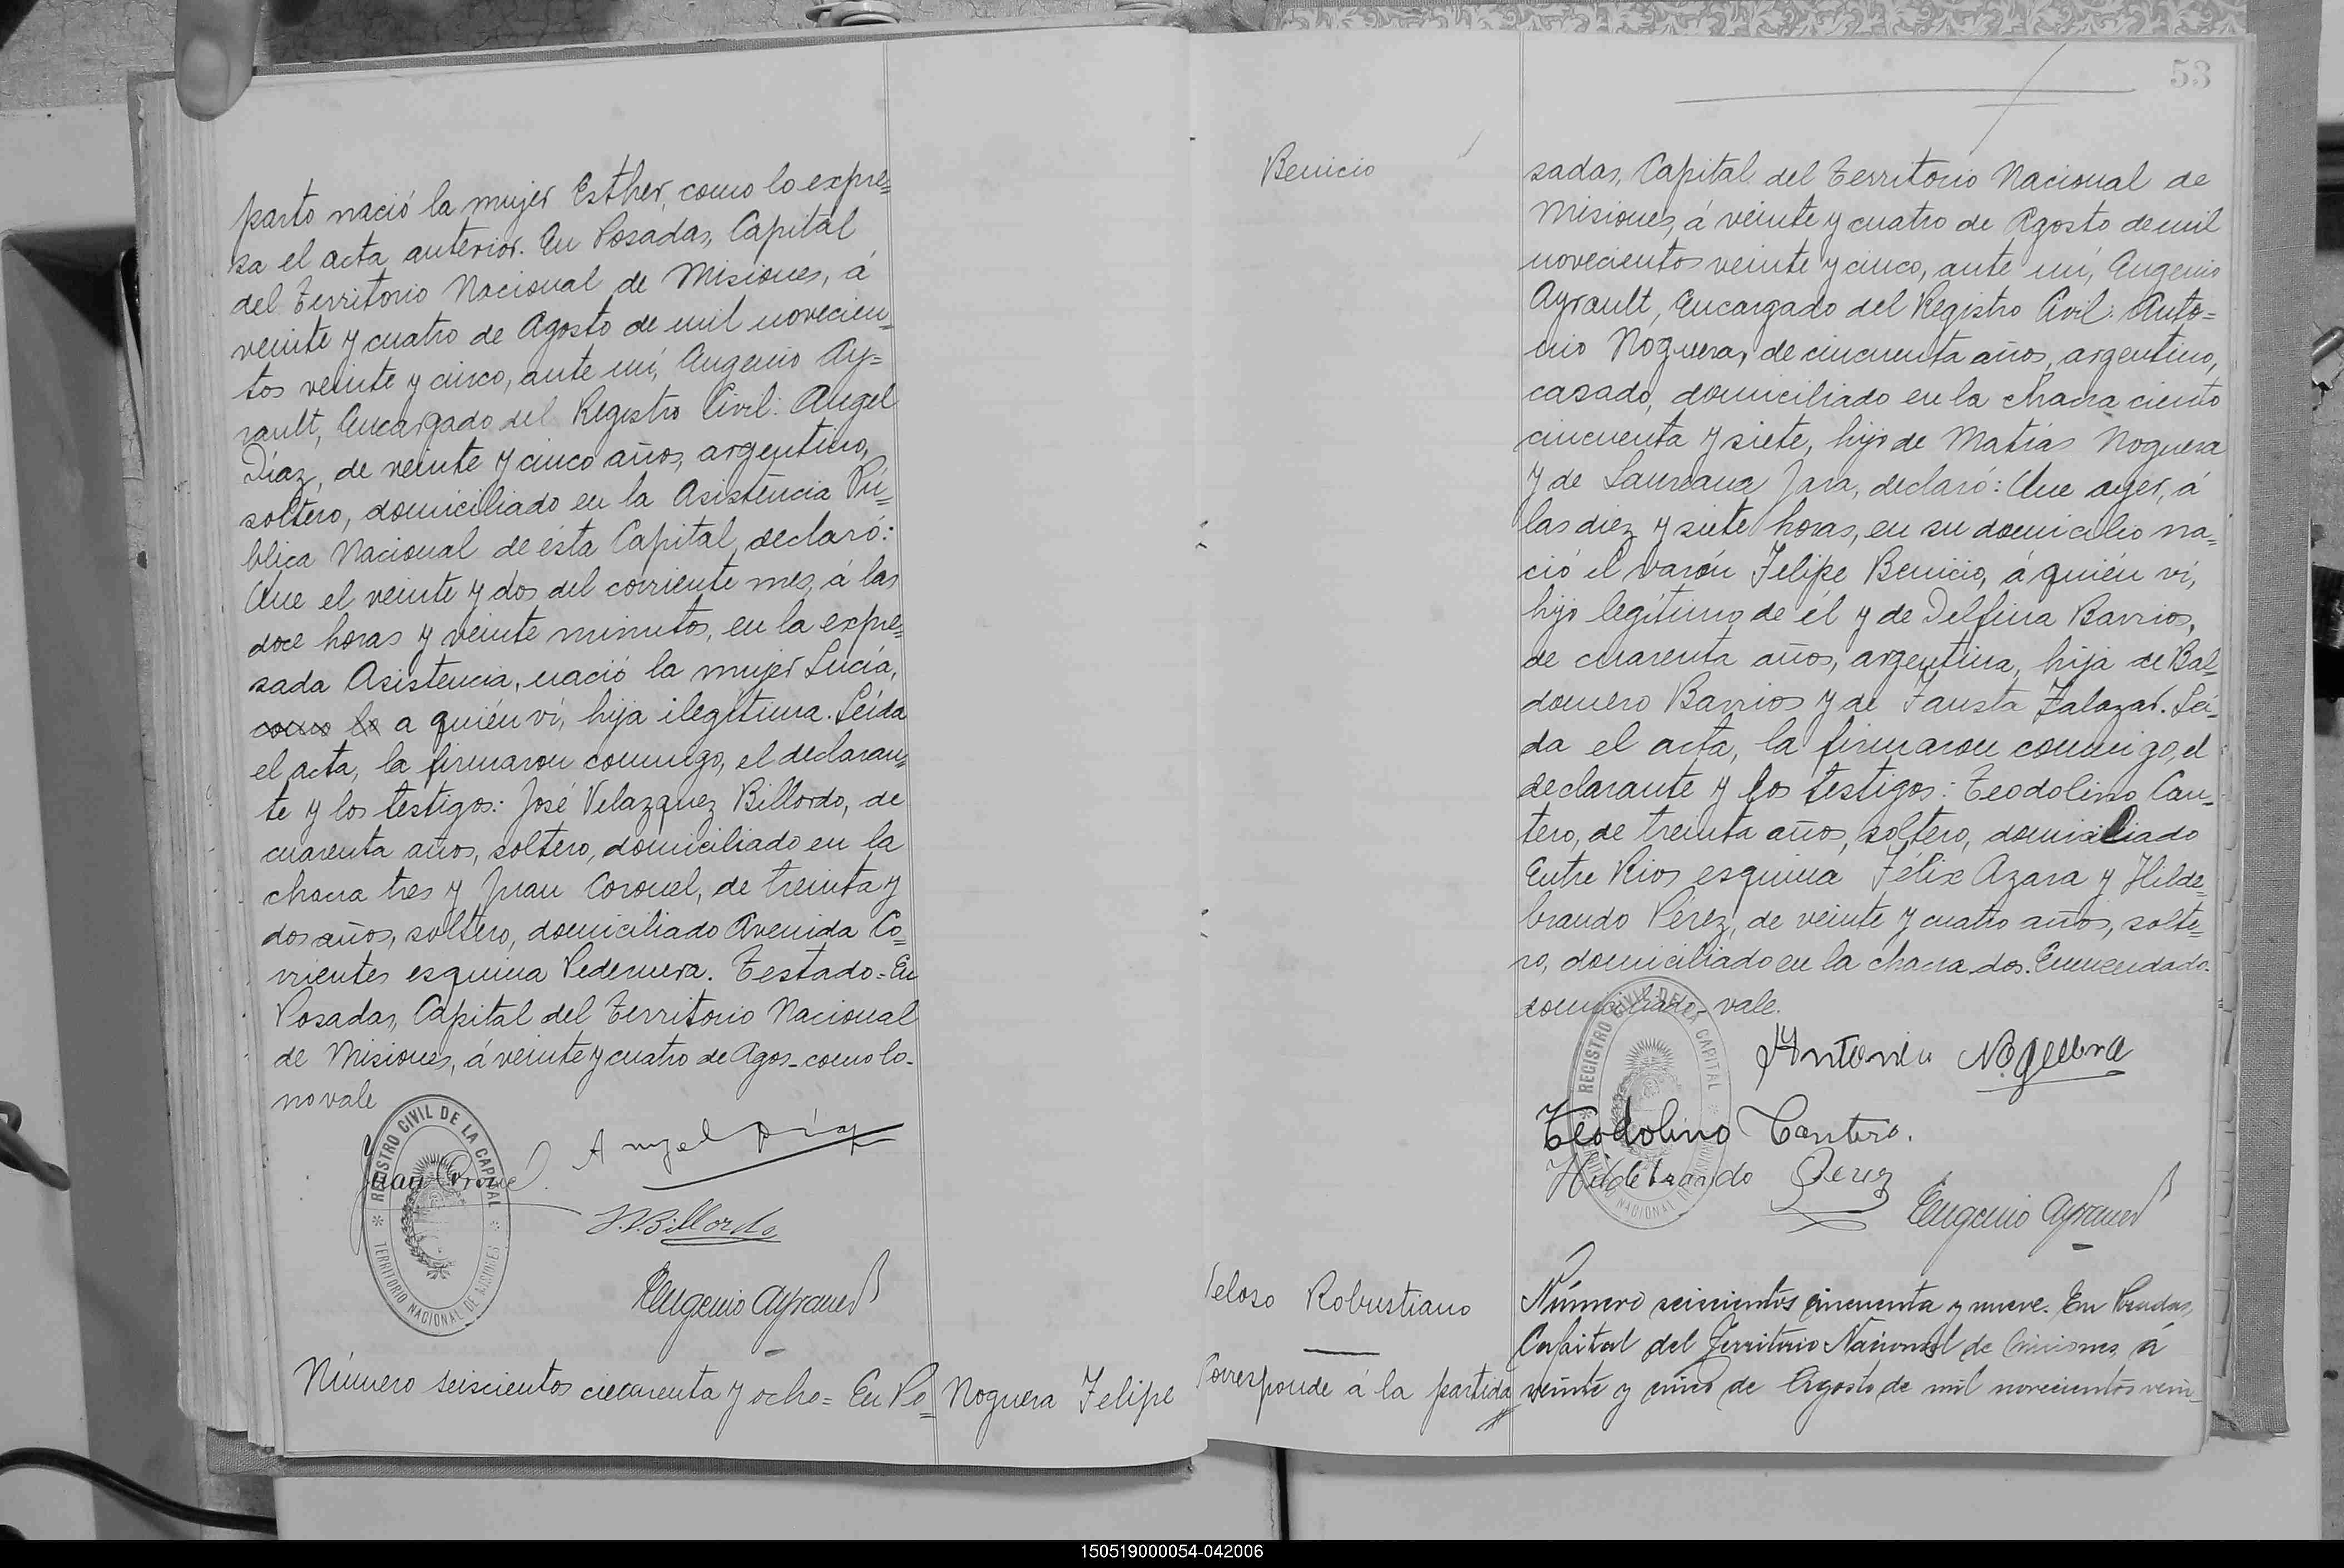 parto nació la mujer Esther, como lo expre=
sa el acta anterior. En Posadas, Capital
del Territorio Nacional de Misiones, á
veinte y cuatro de Agosto de mil novecien=
tos veinte y cinco, ante mí, Eugenio Ay=
rault, Encargado del Registro Civil: Angel
Díaz, de veinte y cinco años, argentino,
soltero, domiciliado en la Asistencia Pú=
blica Nacional de ésta Capital, declaró:
Que el veinte y dos del corriente mes, á las
doce horas y veinte minutos, en la expre=
sada Asistencia, nació la mujer Lucía,
como lo a quién ví, hija ilegítima. Leída
el acta, la firmaron conmigo, el declaran=
te y los testigos: José Velazquez Billordo, de
cuarenta años, soltero, domiciliado en la
chacra tres y Juan Coronel, de treinta y
dos años, soltero, domiciliado Avenida Co=
rrientes esquina Pedernera. Testado=En
Posadas, Capital del Territorio Nacional
de Misiones, á veinte y cuatro de Agos-como lo-
no vale
Angel Díaz
Juan Coronel
J.V. Billordo
Eugenio Ayrault
REGISTRO CIVIL DE LA CAPITAL
TERRITORIO NACIONAL DE MISIONES
Número seiscientos cincuenta y ocho= En Po=
Noguera Felipe
53
Benicio
sadas, Capital del Territorio Nacional de
Misiones, á veinte y cuatro de Agosto de mil
novecientos veinte y cinco, ante mí, Eugenio
Ayrault, Encargado del Registro Civil: Anto=
nio Noguera, de cincuenta años, argentino,
casado, domiciliado en la chacra ciento
cincuenta y siete, hijo de Matías Noguera
y de Laureana Jara, declaró: Que ayer, á
las diez y siete horas, en su domicilio na=
ció el varón Felipe Benicio, á quién ví,
hijo legítimo de él y de Delfina Barrios,
de cuarenta años, argentina, hija de Bal=
domero Barrios y de Fausta Zalazar. Leí=
da el acta, la firmaron conmigo, el
declarante y los testigos: Teodolino Can=
tero, de treinta años, soltero, domiciliado
Entre Rios esquina Félix Azara y Hilde=
brando Pérez, de veinte y cuatro años, solte=
ro, domiciliado en la chacra dos. Enmendado-
domiciliado-vale.
Antonio Noguera
Teodolino Cantero.
Hildebrando Perez
Eugenio Ayrault
REGISTRO CIVIL DE LA CAPITAL
TERRITORIO NACIONAL DE MISIONES
Veloso Robustiano
Corresponde á la partida
Número seiscientos cincuenta y nueve. En Posadas,
Capital del Territorio Nacional de Misiones, á
veinte y cinco de Agosto de mil novecientos vein=
150519000054-042006